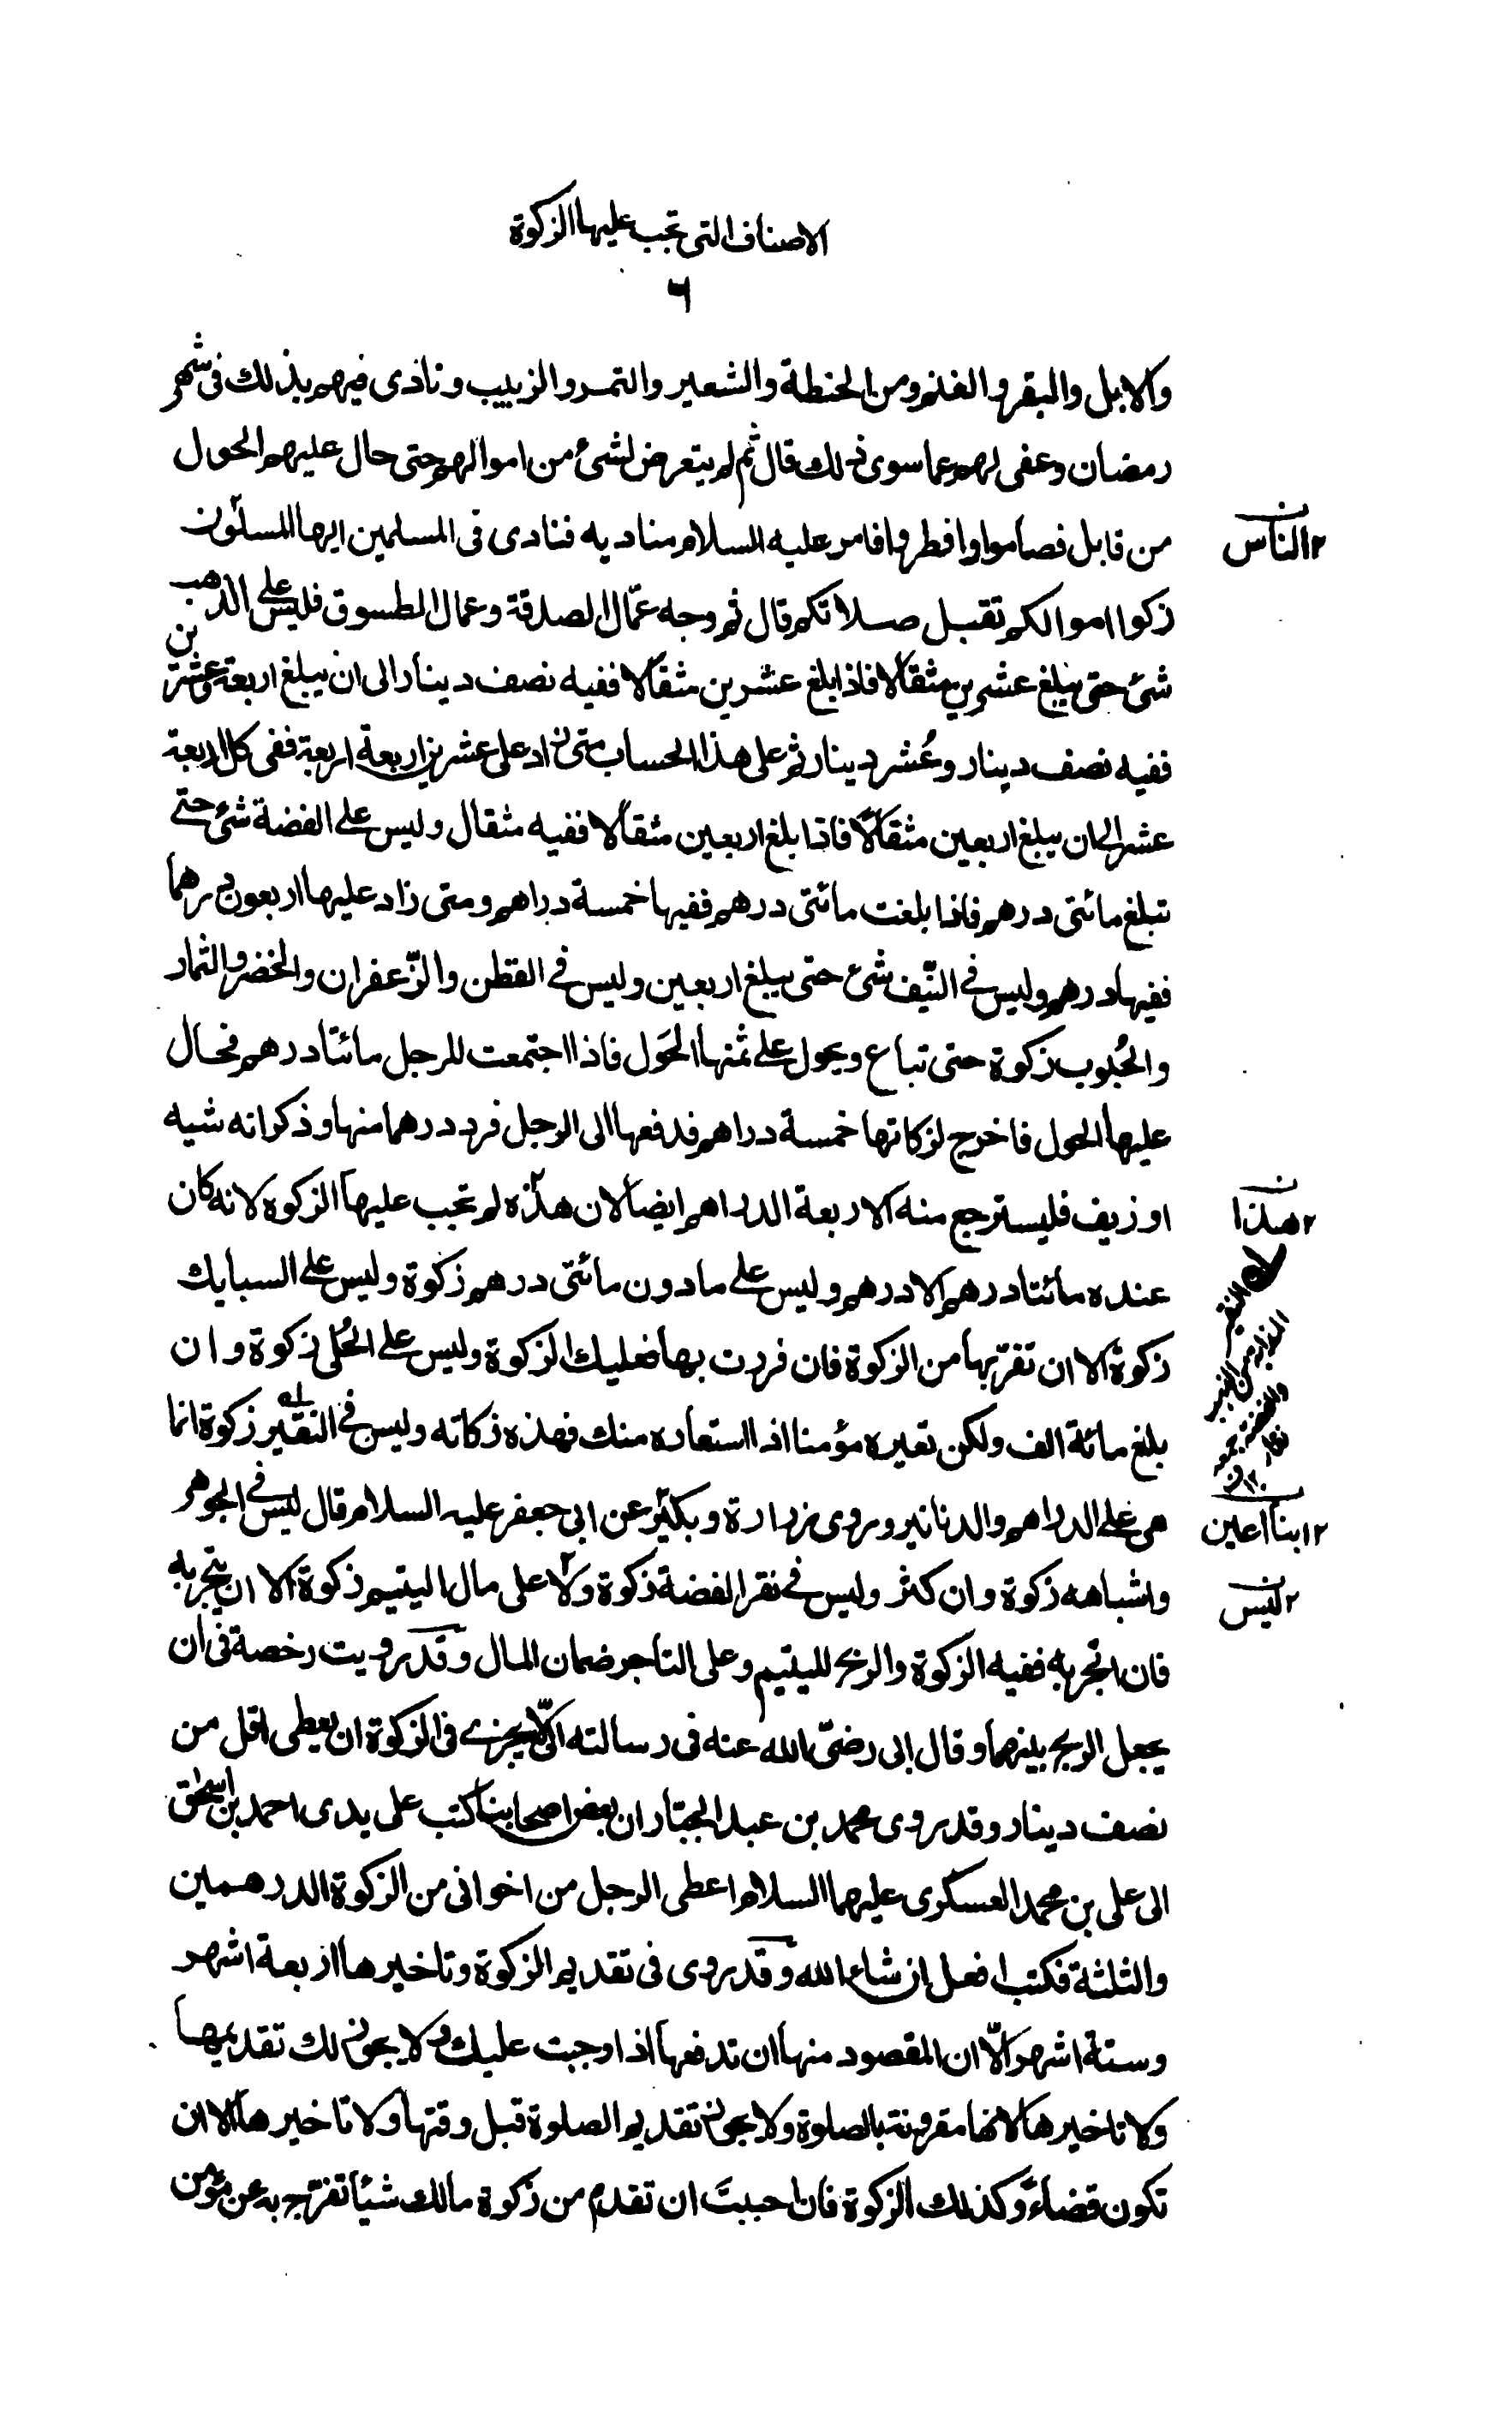 الاصناف التى تجب عليها الزكوة
٦
والابل والبقر والغنم ومن الحنطة والشعير والتمر والزبيب ونادى فيهم بذلك فى شهر
رمضان وعفى لهم عما سوى ذلك قال ثم لم يتعرض لشئ من اموالهم حتى حال عليهم الحول
من قابل فصاموا وافطروا فامر عليه السلام مناديه فنادى فى المسلمين ايها المسلمون
٢ الناس
زكوا اموالكم تقبل صلاتكم قال ثم وجه عمّال الصدقة وعمال الطسوق فليس على الذهب
شئ حتى يبلغ عشرين مثقالا فاذا بلغ عشرين مثقالا ففيه نصف دينار الى ان يبلغ اربعة وعشرين
ففيه نصف دينار وعُشر دينار ثم على هذا الحساب متى زاد على عشرين اربعة اربعة ففى كل اربعة
عشر الى ان يبلغ اربعين مثقالاً فاذا بلغ اربعين مثقالا ففيه مثقال وليس على الفضة شئ حتى
تبلغ مائتى درهم فاذا بلغت مائتى درهم ففيها خمسة دراهم ومتى زاد عليها اربعون درهما
ففيها درهم وليس في النّيف شئ حتى يبلغ اربعين وليس في القطن والزّعفران والخضر والثمار
والحُبوب زكوة حتى تباع ويحول على ثمنها الحَول فاذا اجتمعت للرجل مائتا درهم فحال
عليها الحول فاخرج لزكاتها خمسة دراهم فدفعها الى الرجل فرد درهما منها وذكر انه شبه
او زيف فليسترجع منه الاربعة الدراهم ايضا لان هذه لم تجب عليها الزكوة لانه كان
٢ هذا
عنده مائتا درهم الا درهم وليس على ما دون مائتى درهم زكوة وليس على السبايك
زكوة الا ان تفر بها من الزكوة فان فررت بها فعليك الزكوة وليس على الحُلى زكوة وان
بلغ مائة الف ولكن تعيره مؤمنا اذا استعاره منك فهذه زكاته وليس في النقير زكوة انما
هى على الدراهم والدنانير وروى زرارة وبكير عن ابى جعفر عليه السلام قال ليس في الجوهر
٢ ابنا اعين
واشباهه زكوة وان كثر وليس في نقر الفضة زكوة ولا على مال اليتيم زكوة الا ان يتجر به
٢ ليس
فان اتجر به ففيه الزكوة والربح لليتيم وعلى التاجر ضمان المال وقد رويت رخصة فى ان
يجعل الربح بينهما وقال ابى رضى الله عنه فى رسالته الىّ لا يجزى فى الزكوة ان يعطى اقل من
نصف دينار وقد روى محمد بن عبد الجبّار ان بعض اصحابنا كتب على يدى احمد بن اسحٰق
الى على بن محمد العسكرى عليهما السلام اعطى الرجل من اخوانى من الزكوة الدرهمين
والثلثة فكتب افعل ان شاء الله وقد روى فى تقديم الزكوة وتاخيرها اربعة اشهر
وستة اشهر الّا ان المقصود منها ان تدفعها اذا وجبت عليك ولا يجوز لك تقديمها
ولا تاخيرها لانها مقرونة بالصلوة ولا يجوز تقديم الصلوة قبل وقتها ولا تاخيرها الا ان
تكون قضاءً وكذلك الزكوة فان احببتَ ان تقدم من زكوة مالك شيئا تفرّج به عن مؤمن